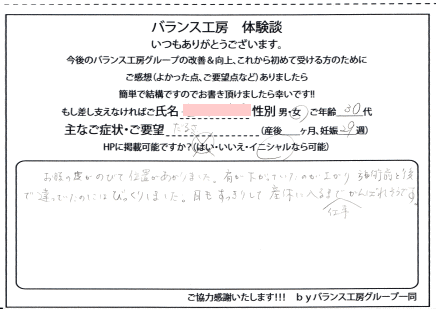 バランス工房 体験談
いつもありがとうございます。
今後のバランス工房グループの改善&向上、これから初めて受ける方のために
ご感想(よかった点、ご要望点など)ありましたら
簡単で結構ですのでお書き頂けましたら幸いです!!
もし差し支えなければご氏名 性別 男・女 ご年齢 30 代
主なご症状・ご要望 (産後 ヶ月、妊娠 29 週)
HPに掲載可能ですか?(はい・いいえ・イニシャルなら可能)
お腹の皮がのびて位置があがりました。肩が下がっていたのが上がり 施術前と後
で違っていたのにはびっくりしました。目もすっきりして産休に入るまでがんばれそうです。
仕事
ご協力感謝いたします!!! byバランス工房グループ一同